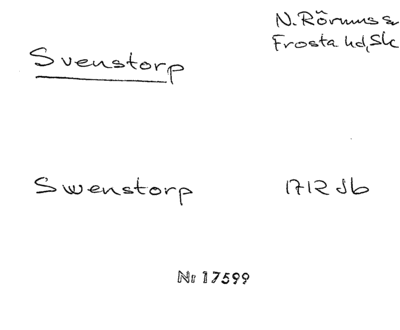 N. Rörums sn
Frosta hd, Sk
Svenstorp
Swenstorp 1712 Jb
Nr 17599